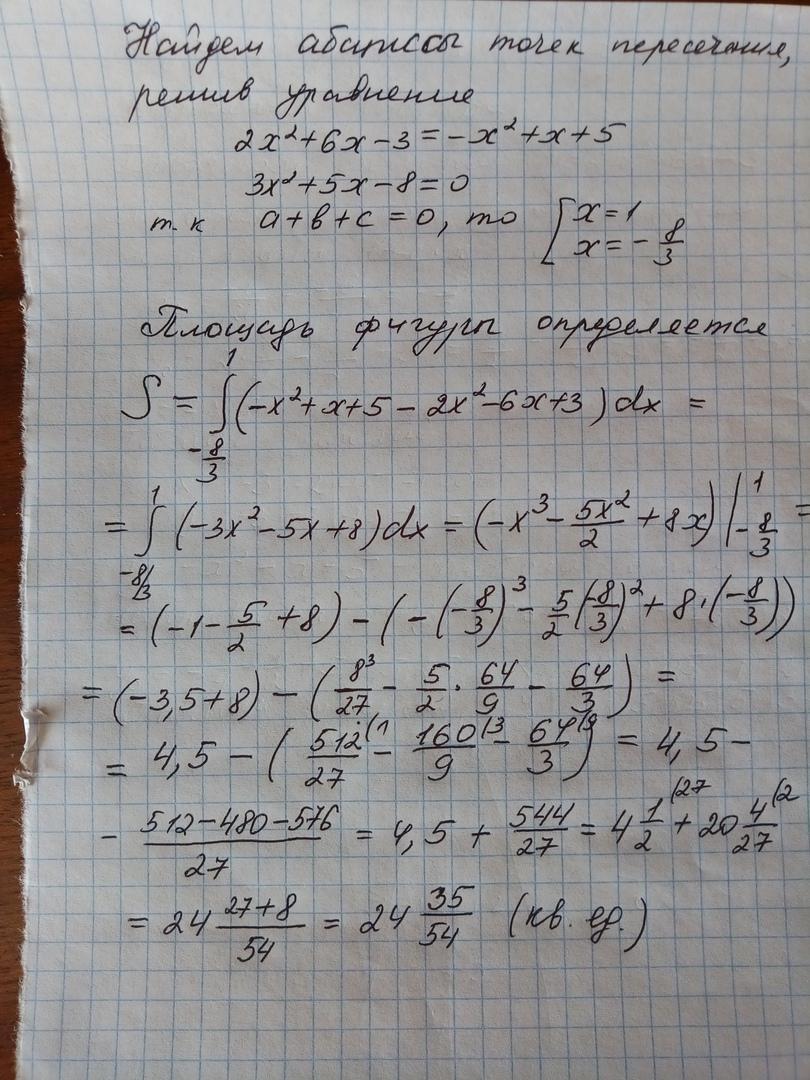 Найдем абсциссы точек пересечения,
решив уравнение
2x² + 6x − 3 = −x² + x + 5
3x² + 5x − 8 = 0
т.к a + b + c = 0, то [x = 1
x = −8/3
Площадь фигуры определяется
S = ∫₋₈/₃¹ (−x² + x + 5 − 2x² − 6x + 3) dx =
= ∫₋₈/₃¹ (−3x² − 5x + 8) dx = (−x³ − 5x²/2 + 8x) |₋₈/₃¹ =
= (−1 − 5/2 + 8) − (−(−8/3)³ − 5/2 (−8/3)² + 8·(−8/3))
= (−3,5 + 8) − (8³/27 − 5/2 · 64/9 − 64/3) =
= 4,5 − (512/27 (1 − 160/9 (3 − 64/3 (9) = 4,5 −
− (512 − 480 − 576)/27 = 4,5 + 544/27 = 4 1/2 (27 + 20 4/27 (2
= 24 (27 + 8)/54 = 24 35/54 (кв. ед.)